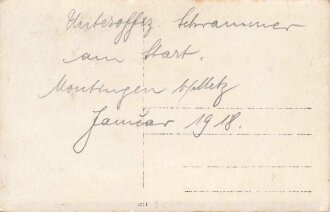 Unteroffz Schrammer
am Start.
Montingen b/Metz
Januar 1918.